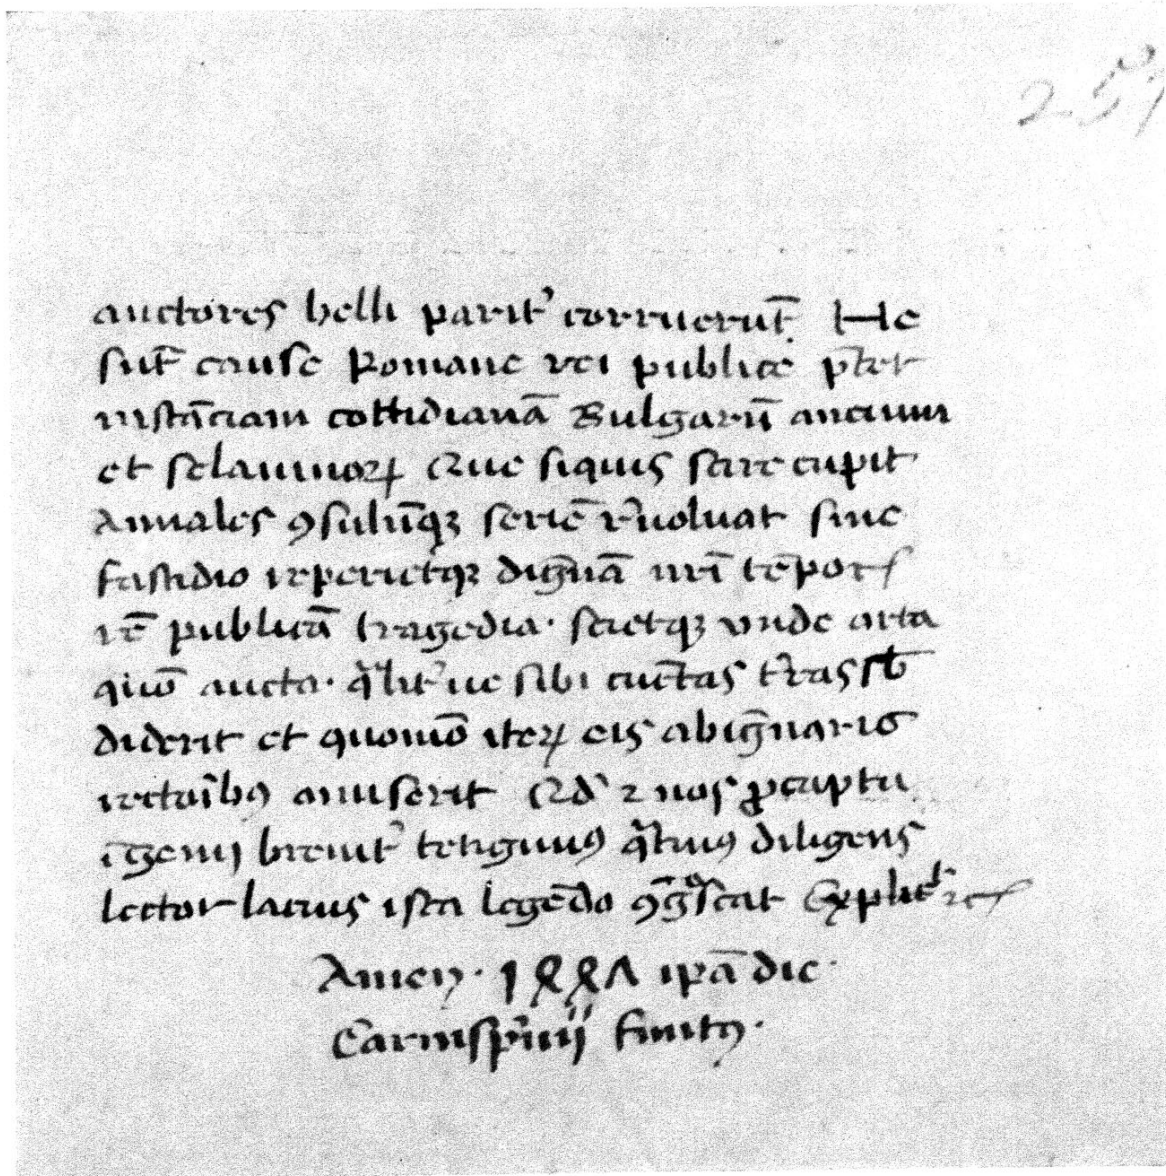 251
auctores belli parit᾽ corruerūt. He
sūt cause Romane rei publice p̄ter
instāciam cottidianā Bulgarū anciuin
et sclauinoꝝ Que siquis scire cupit
Annales ꝯsulūqꝫ seriē r̄uoluat sine
fastidio reperietqꝫ dignā nrī tēporꝭ
rē publicā tragedia · scietqꝫ vnde orta
quō aucta · qͣlit᾽ ue sibi cūctas t̄ras sb̄
diderit et quomō iteꝝ eis ab ignaris
rectoībꝰ amiserit Qd᾽ ⁊ nos ꝓ captu
īgenij breuit᾽ tetigimꝰ qͣtinꝰ diligens
lector lacius ista legēdo ꝯgͦscat Explicit ⁊cꝭ
Amen · 1881 ip̄a die ·
Carnisp̄uij finitꝰ ·